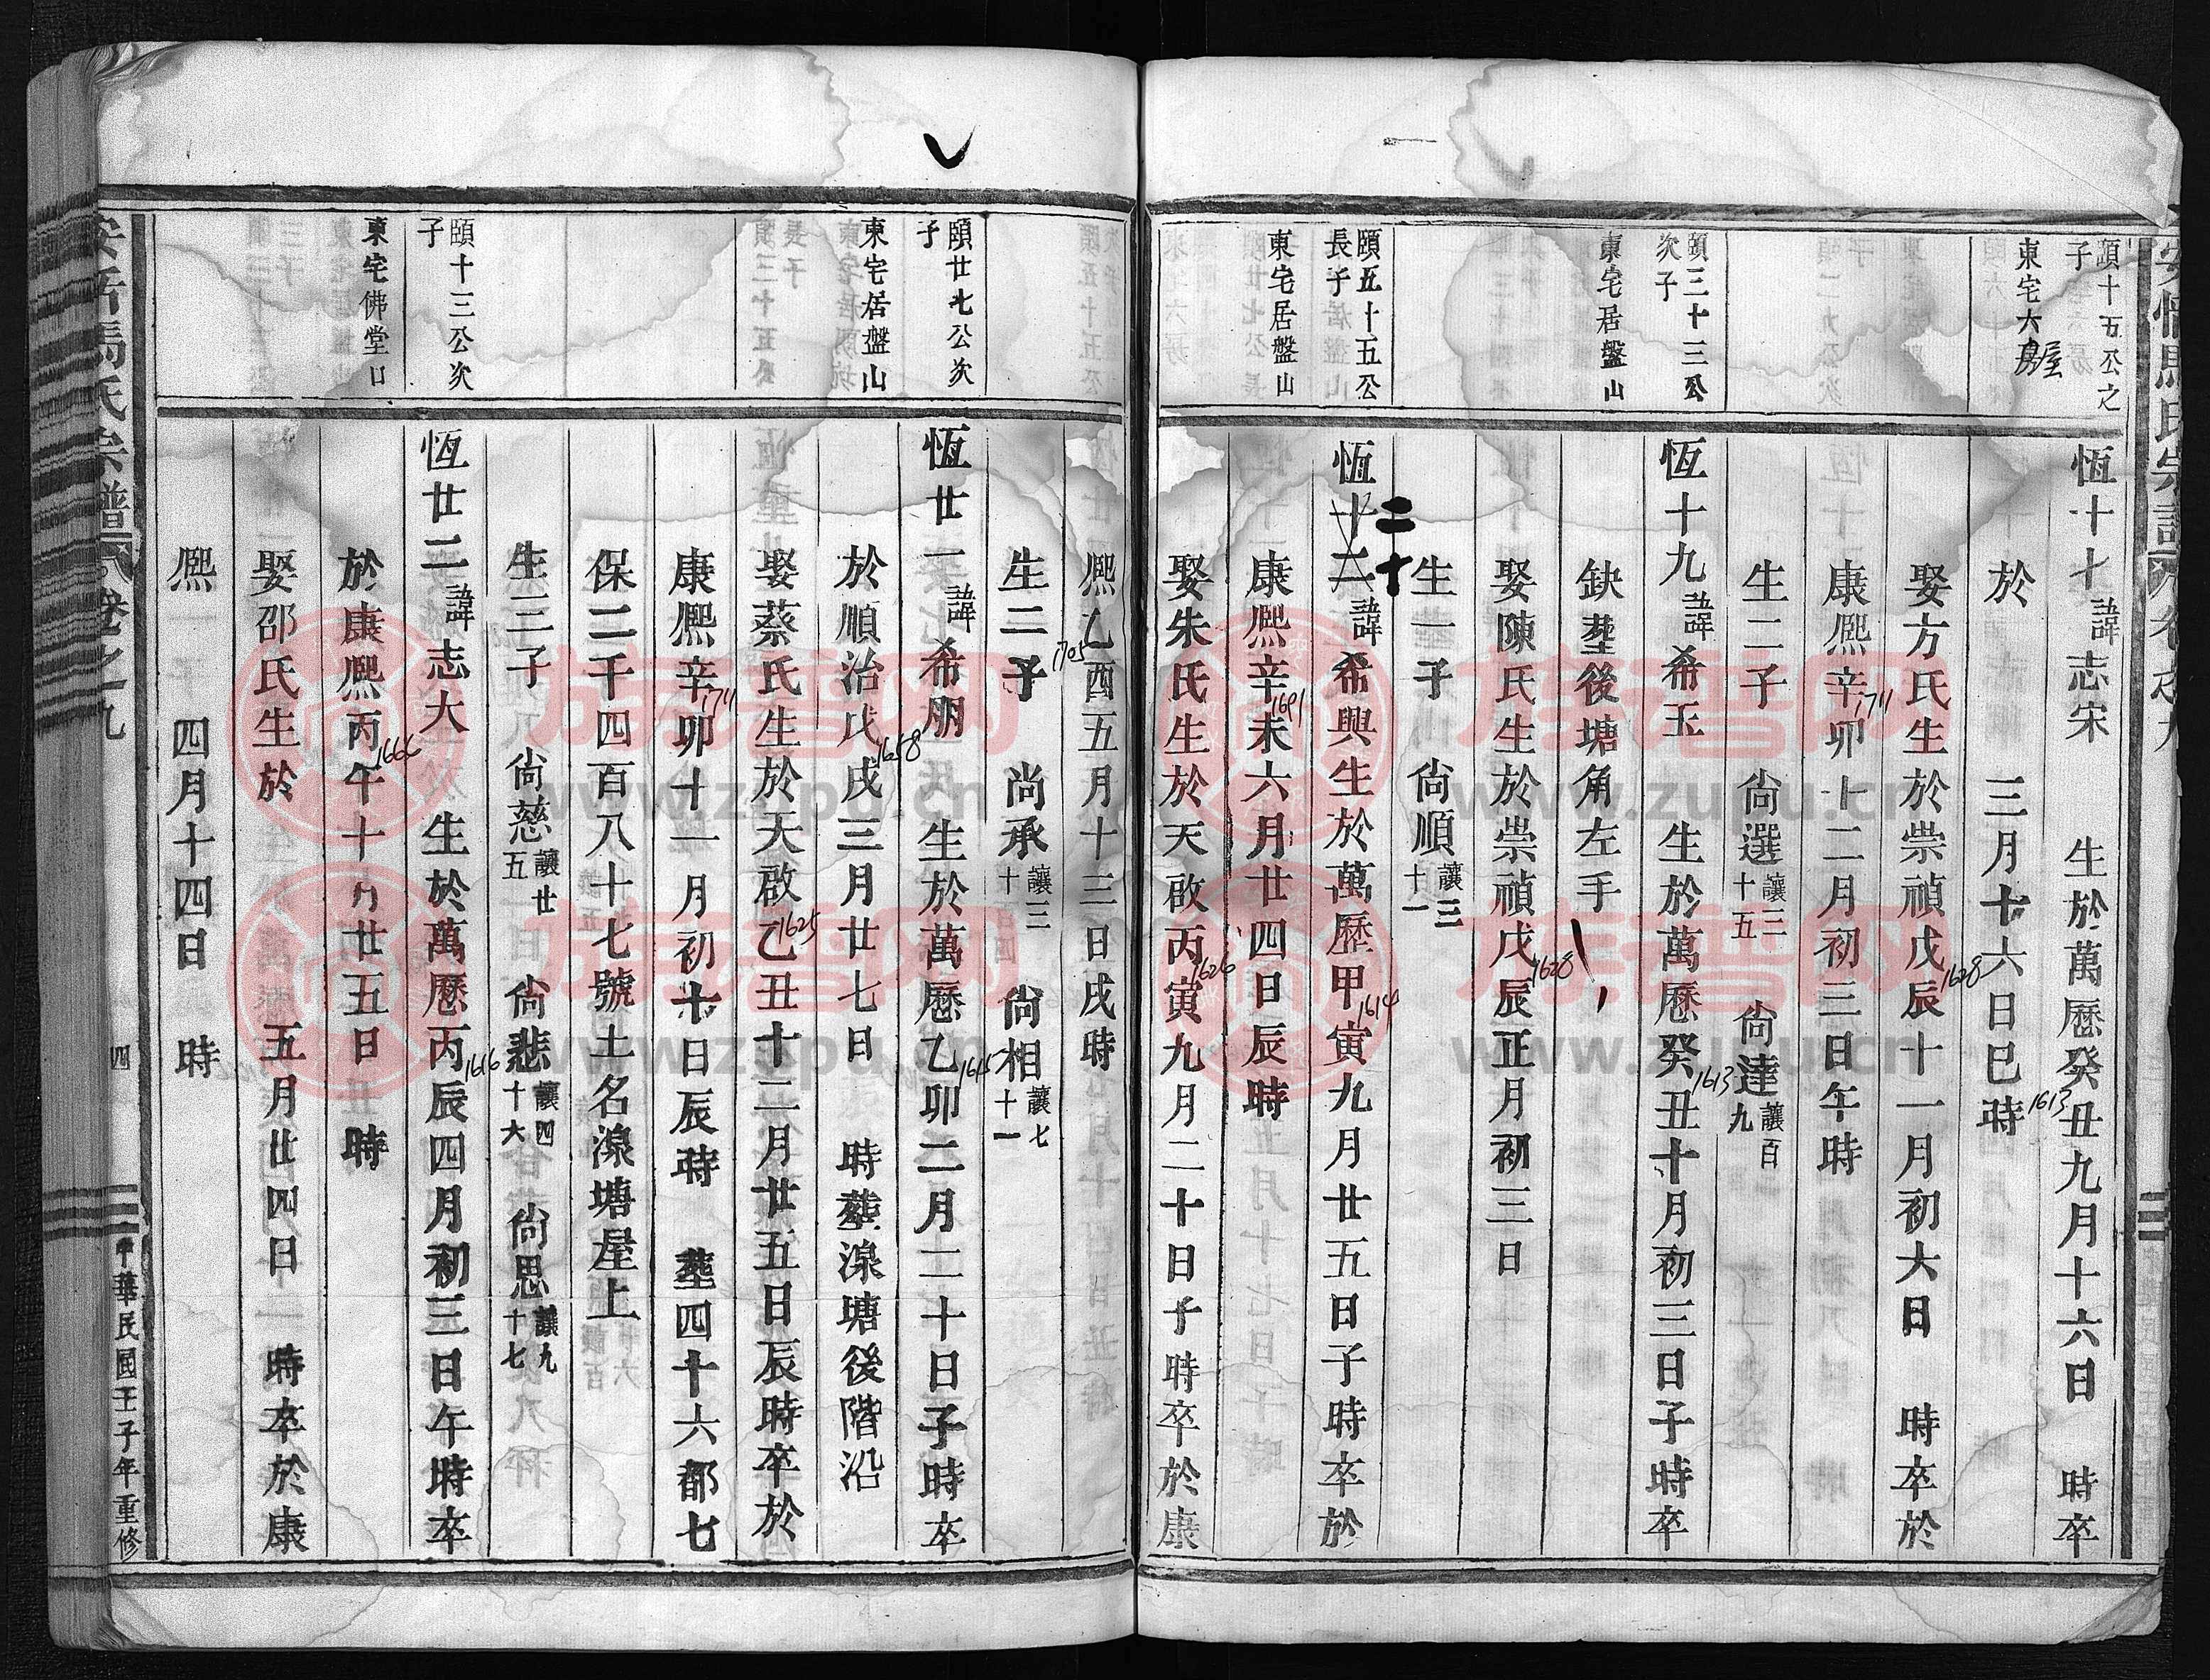 頤十五公之
子
東宅六房
屋
恆十七諱志宋 生於萬曆癸丑九月十六日 時卒
1613
於 三月十六日巳時
娶方氏生於崇禎戊辰十一月初六日 時卒於
1628
康熙辛卯十二月初三日午時
1711
生二子 尙選讓三十五 尙達讓百九
頤三十三公
次子
東宅居盤山
恆十九諱希玉 生於萬曆癸丑十月初三日子時卒
1613
缺塟後塘角左手
娶陳氏生於崇禎戊辰正月初三日
1628
生一子 尙順讓三十一
頤五十五公
長子
東宅居盤山
恆十二諱希興生於萬歷甲寅九月廿五日子時卒於
二十
1614
康熙辛未六月廿四日辰時
1691
娶朱氏生於天啟丙寅九月二十日子時卒於康
1626
熙乙酉五月十三日戌時
1705
生二子 尚承讓三十 尙相讓七十一
頤廿七公次
子
東宅居盤山
恆廿一諱希朋 生於萬曆乙卯二月二十日子時卒
1615
於順治戊戌三月廿七日 時塟湶塘後階沿
1658
娶蔡氏生於天啟乙丑十二月廿五日辰時卒於
1625
康熙辛卯十一月初十日辰時 塟四十六都七
1711
保二千四百八十七號土名湶塘屋上
生三子 尙慈讓廿五 尙悲讓四十六 尙思讓九十七
頤十三公次
子
東宅佛堂口
恆廿二諱志大 生於萬曆丙辰四月初三日午時卒
1616
於康熙丙午十月廿五日 時
1666
娶邵氏生於 五月廿四日 時卒於康
熙 四月十四日 時
馬氏宗譜 卷之九
四
中華民國壬子年重修
族谱网
www.zupu.cn